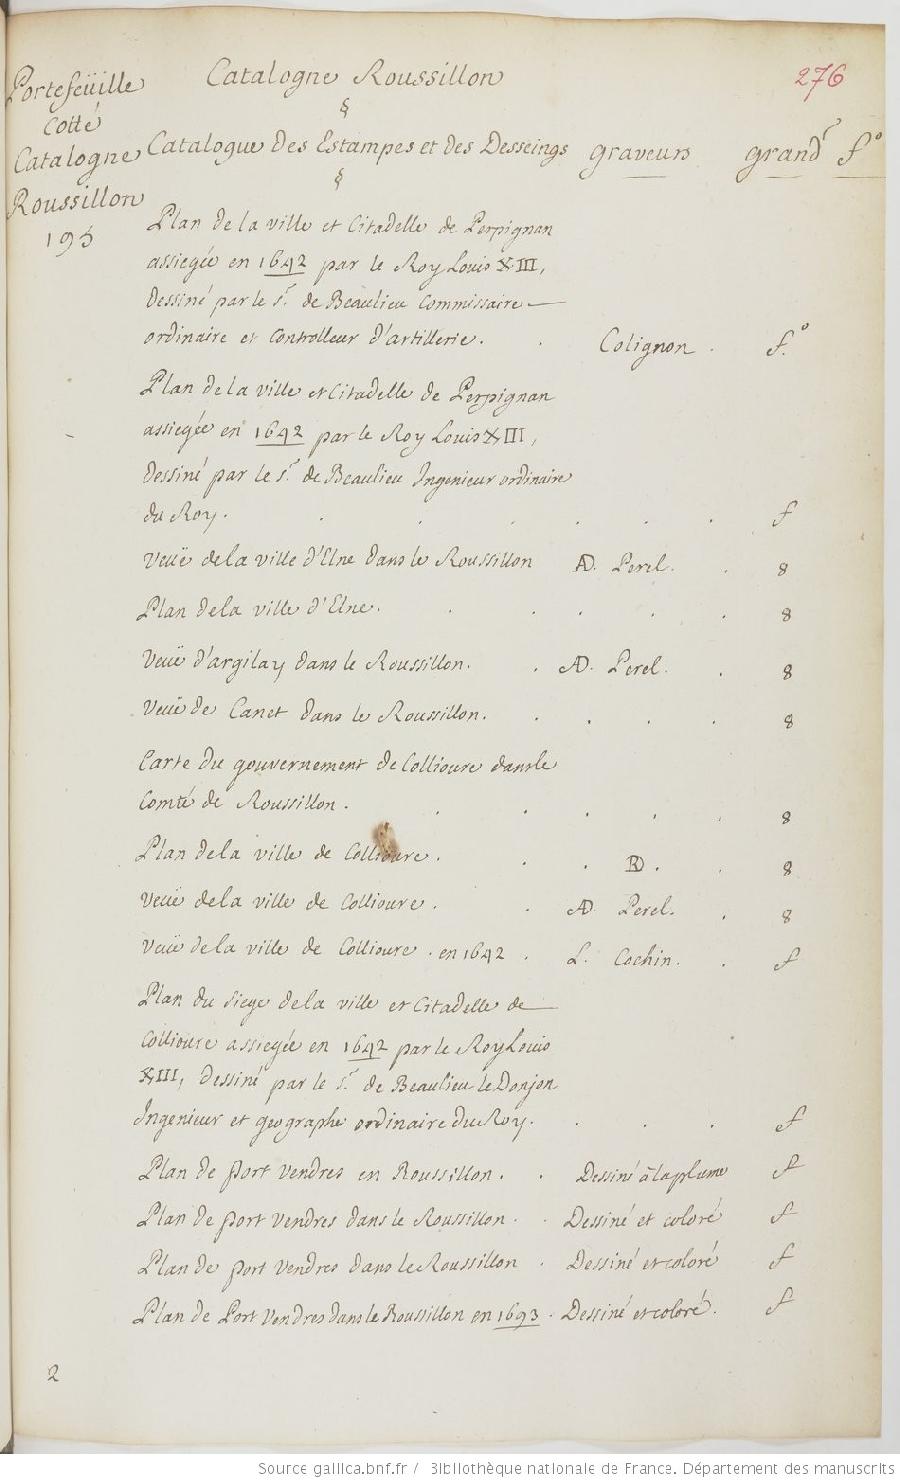 Catalogne Roussillon
276
Portefeüille
Cotté
Catalogne
Roussillon
193
§
Catalogue des Estampes et des Desseings graveurs grandr f°
§
Plan de la ville et Citadelle de Perpignan
assiegée en 1642 par le Roy Louis XIII,
Dessiné par le sr. de Beaulieu Commissaire
ordinaire et Controlleur d'artillerie. Colignon. f.°
Plan de la ville et Citadelle de Perpignan
assiegée en 1642 par le Roy Louis XIII,
Dessiné par le sr. de Beaulieu Ingenieur ordinaire
du Roy. f
Veüe de la ville d'Elne dans le Roussillon AD. Perel. 8
Plan de la ville d'Elne. 8
Veüe d'argilay dans le Roussillon. AD. Perel. 8
Veüe de Canet dans le Roussillon. 8
Carte du gouvernement de Collioure dans le
Comté de Roussillon. 8
Plan de la ville de Collioure. 8
Veüe de la ville de Collioure. AD Perel. 8
Veüe de la ville de Collioure. en 1642. L. Cochin. f
Plan du siege de la ville et Citadelle de
Collioure assiegée en 1642 par le Roy Louis
XIII, Dessiné par le sr. de Beaulieu le Donjon
Ingenieur et geographe ordinaire du Roy. f
Plan de port Vendres en Roussillon. Dessiné à la plume f
Plan de port Vendres dans le Roussillon. Dessiné et coloré f
Plan de port Vendres dans le Roussillon. Dessiné et coloré f
Plan de Port Vendres dans le Roussillon en 1693. Dessiné et coloré. f
2
Source gallica.bnf.fr / Bibliothèque nationale de France. Département des manuscrits